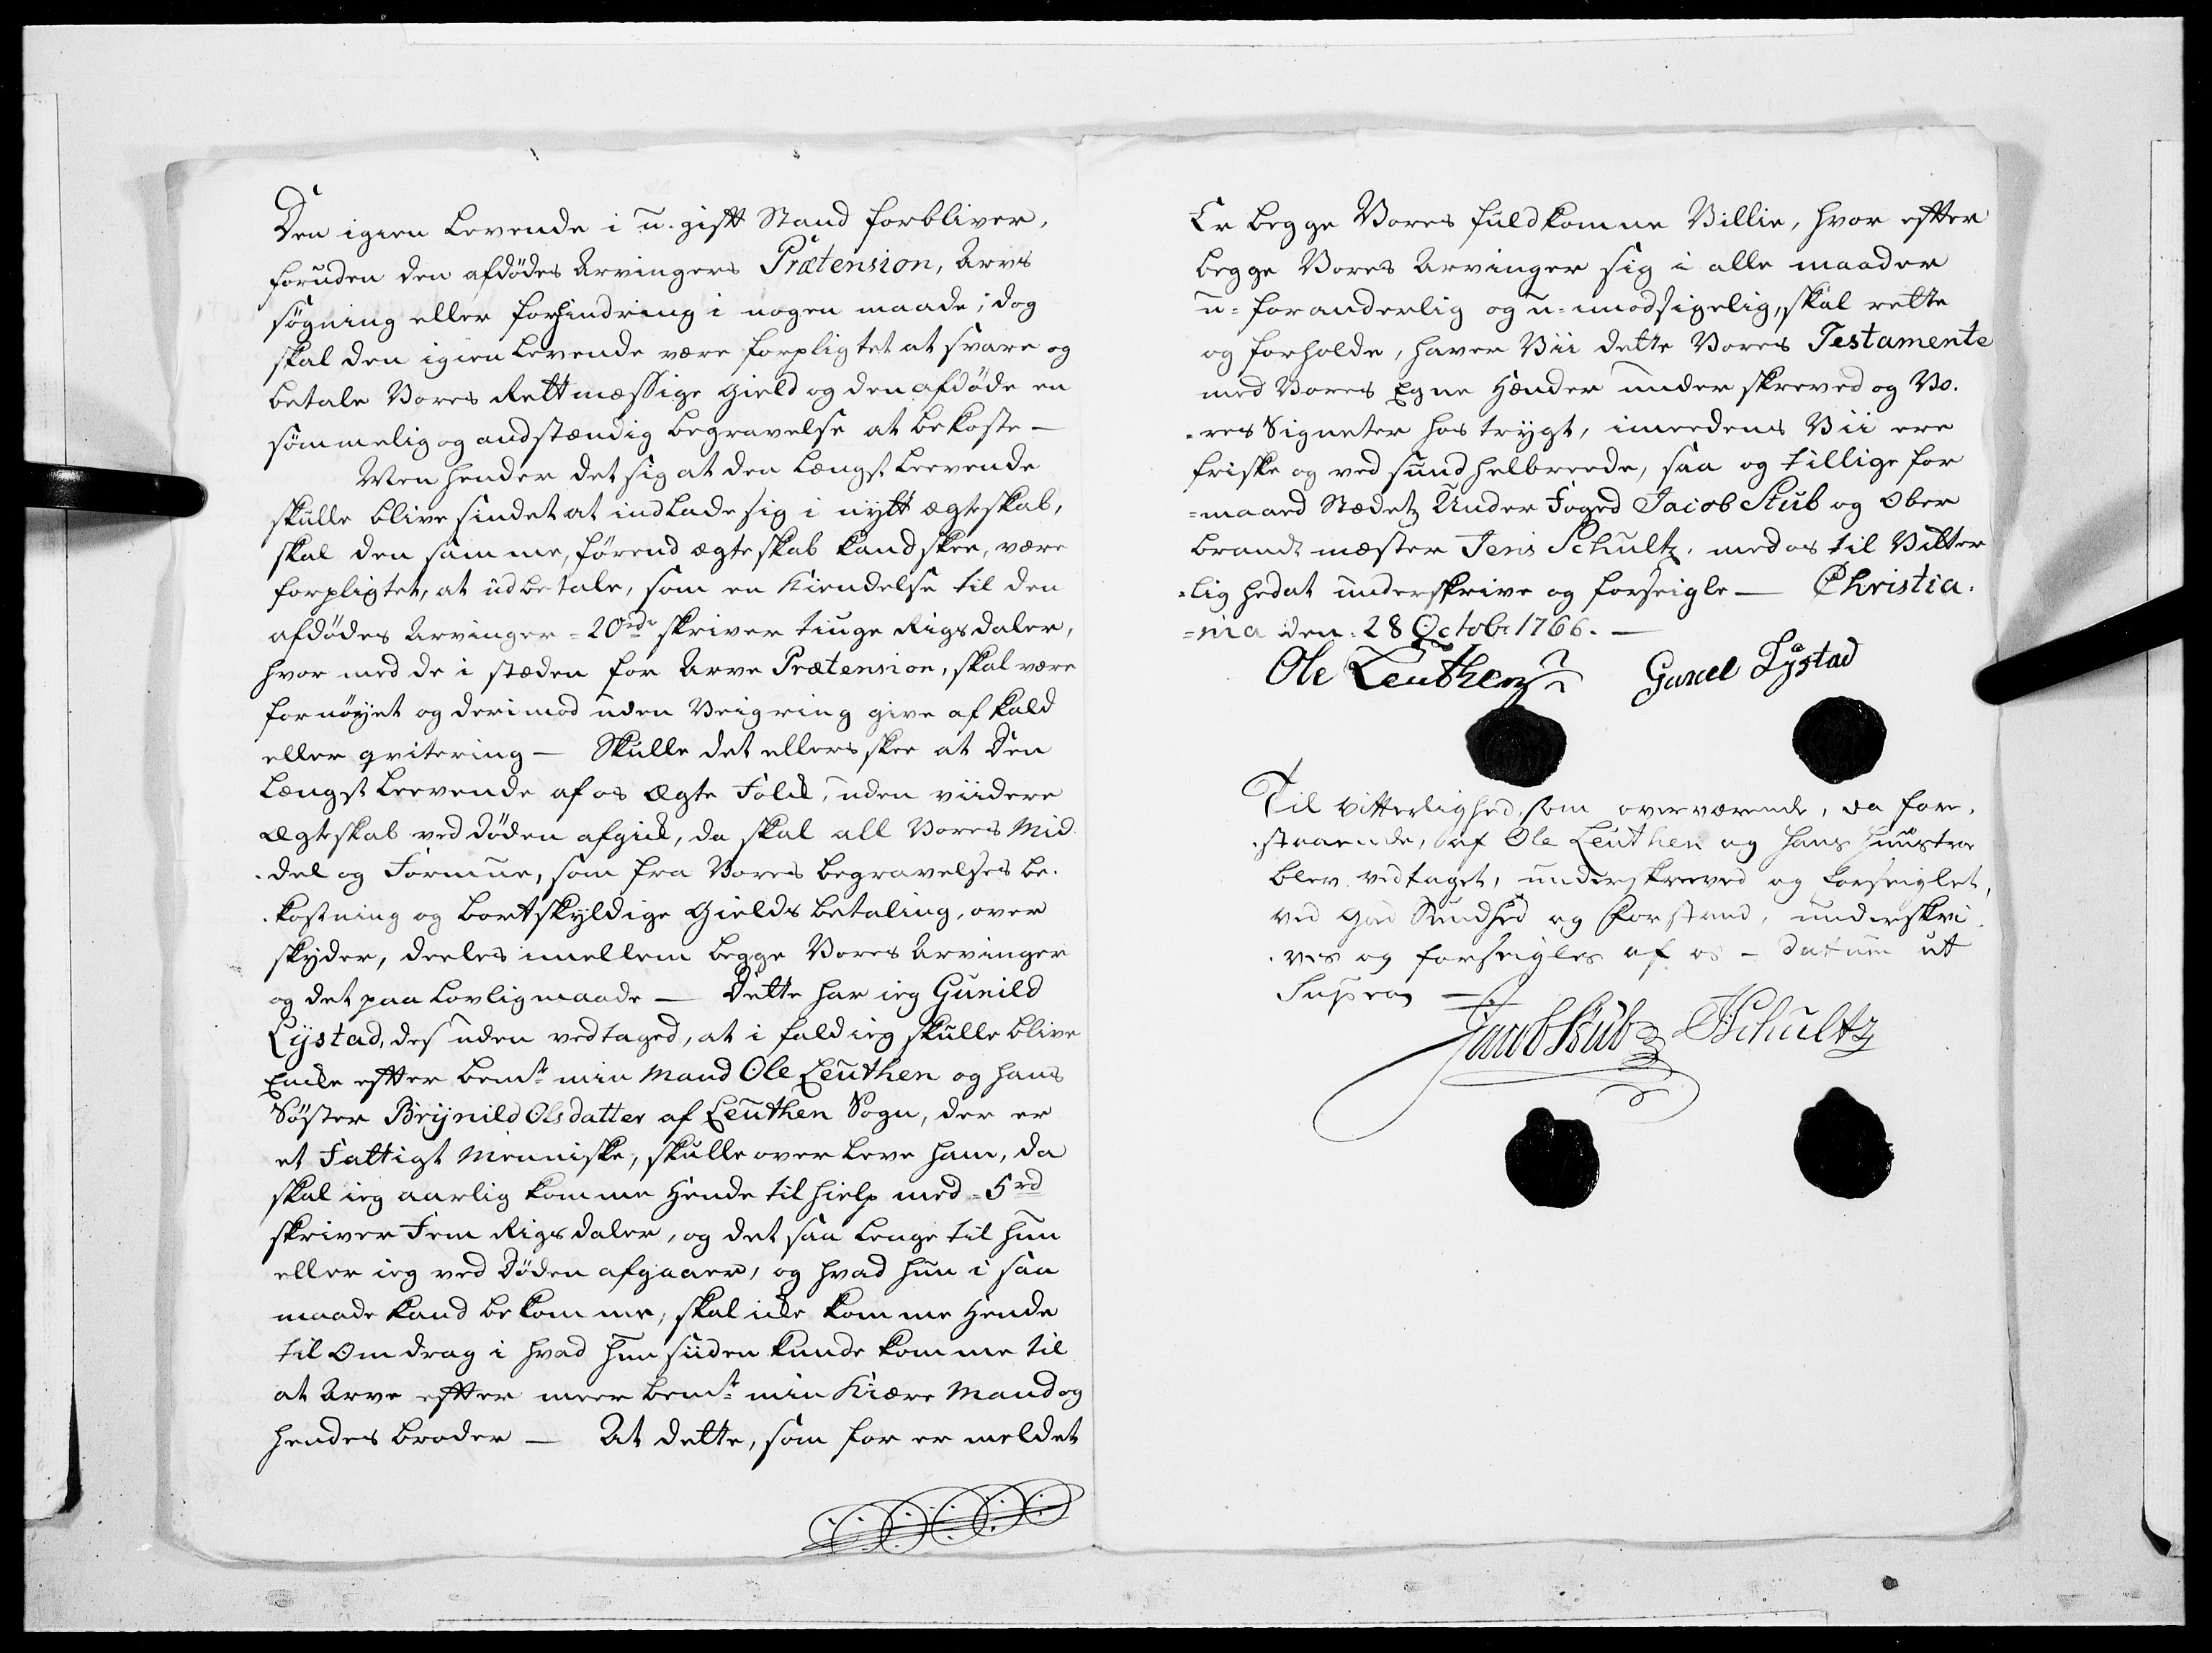 Den igien Levende i u-gift Stand forbliver,
foruden den afdödes Arvingers Prætension, Arvs
søgning eller forhindring i nogen maade; dog
skal den igien Levende være forpligtet at svare og
betale Vores Rettmæssige Gield og den afdöde en
sömmelig og anstændig begravelse at bekoste –
Men hender det sig at den Længst Leevende
skulle blive sindet at indlade sig i nytt ægteskab,
skal den samme, förend ægteskab kand skee, være
forpligtet, at udbetale, som en Kiendelse til den
afdödes Arvinger = 20 rdr skriver tiuge Rigsdaler,
hvor med de i stæden for Arve Prætension, skal være
fornöyet og derimod uden Veigring give afkald
eller qvitering – Skulle det ellers skee at Den
Længst Leevende af os Ægte Folck, uden viidere
Ægteskab ved Döden afgick, da skal all Vores Mid-
-del og Formue, som fra Vores begravelses be-
-kostning og bortskyldige Gields betaling, over
skyder, deeles imellem begge Vores Arvinger
og det paa Lovlig maade – Dette har ieg Gunild
Lÿstad, des uden vedtaged, at i fald ieg skulle blive
Encke efter bemte min Mand Ole Leuthen og hans
Söster Brÿnild Olsdatter af Leuthen Sogn, der er
et Fattigt Menniske, skulle over Leve ham, da
skal ieg aarlig komme Hende til hielp med = 5 rd
skriver Fem Rigsdaler, og det saa Lenge til hun
eller ieg ved Döden afgaaer, og hvad hun i saa
maade kand bekomme, skal icke komme Hende
til Omdrag i hvad hun siiden kunde komme til
at Arve efter meer bemte min Kiære Mand og
hendes broder – At dette, som for er meldet
Er begge Vores fuldkomne Villie, hvor efter
begge Vores Arvinger sig i alle maader
u-foranderlig og u-imodsigelig, skal rette
og forholde, haver Vii dette Vores Testamente
med Vores Egne Hænder underskreved og Vo-
-res Signeter hos trygt, imeedens Vii ere
friske og ved sund helbreede, saa og tillige for
=maaed Stædetz Under Foged Jacob Stub og Ober
brandt mæster Jens Schultz, med os til Vitter
-lighed at underskrive og forseigle – Christia-
=nia den: 28 Octobr 1766. –
Ole Leuthen Gunel Lÿstad
Til Vitterlighed, som overværende, da fore-
-staaende, af Ole Leuthen og hans Huustroe
blev vedtaget, underskreeved og forseiglet,
ved god Sundhed og Forstand, underskri-
-ves og forseigles af os – Datum ut
Supra –
Jacob Stub JSchultz